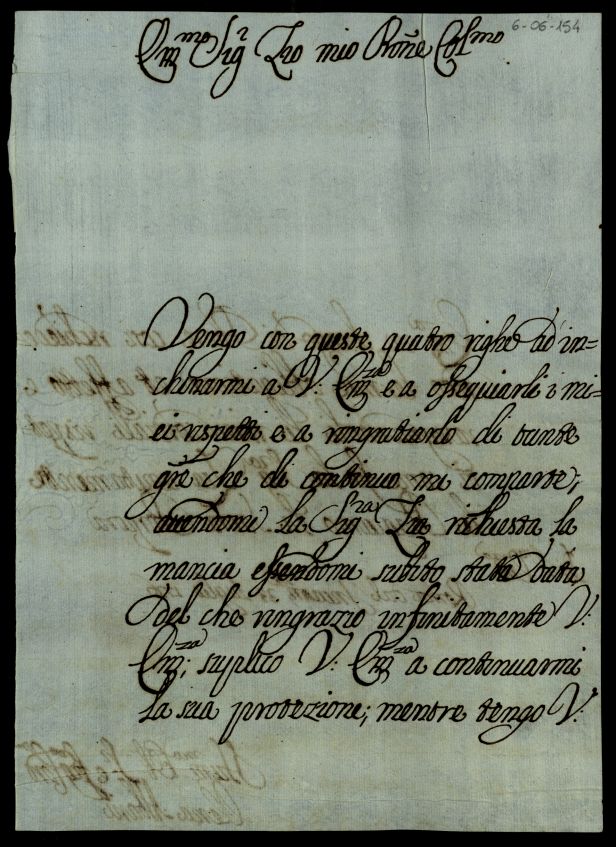 6-06-154
Em.mo Sig.r Zio mio Pro͠ne Col.mo
Vengo con queste quatro righe ad in-
chinarmi a V: Em.za e a ossequiarli i mi-
ei rispetti e a ringratiarlo di tante
gr͠e che di continuo mi comparte;
auendomi la Sig.ra Zia richiesta la
mancia essendomi subito stata data
del che ringrazio infinitamente V:
Em.za; suplico V: Em.za a continuarmi
la sua protezione; mentre tengo V: